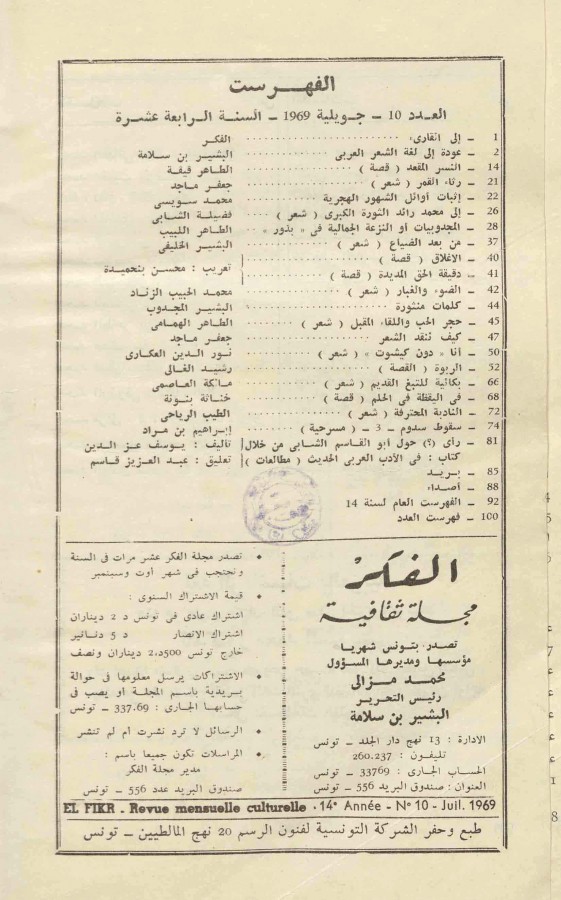 الفهرست
العدد 10 - جويلية 1969 - السنة الرابعة عشرة
1 - إلى القارىء .......... الفكر
2 - عودة إلى لغة الشعر العربى .......... البشير بن سلامة
14 - النسر المقعد ( قصة ) .......... الطاهر قيقة
21 - رثاء القمر ( شعر ) .......... جعفر ماجد
22 - إثبات أوائل الشهور الهجرية .......... محمد سويسى
26 - إلى محمد رائد الثورة الكبرى ( شعر ) .......... فضيلة الشابى
28 - المجدوبيات أو النزعة الجمالية فى « بذور » .......... الطاهر اللبيب
37 - من بعد الضياع ( شعر ) .......... البشير الخليفى
40 - الاغلاق ( قصة ) ..........
41 - دقيقة الحق المديدة ( قصة ) .......... تعريب : محسن بنحميدة
42 - الضوء والغبار ( شعر ) .......... محمد الحبيب الزناد
44 - كلمات منثورة .......... البشير المجدوب
45 - حجر الحب واللقاء المقبل ( شعر ) .......... الطاهر الهمامى
47 - كيف ننقد الشعر .......... جعفر ماجد
50 - أنا « دون كيشوت » ( شعر ) .......... نور الدين العكارى
52 - الربوة ( القصة ) .......... رشيد الغالى
66 - بكائية للتبغ القديم ( شعر ) .......... مالكة العاصمى
68 - فى اليقظة فى الحلم ( قصة ) .......... خناثة بنونة
72 - النادبة المحترفة ( شعر ) .......... الطيب الرياحى
74 - سقوط سدوم - 3 - ( مسرحية ) .......... إبراهيم بن مراد
81 - رأى (؟) حول أبو القاسم الشابى من خلال تأليف : يوسف عز الدين
كتاب : فى الأدب العربى الحديث ( مطالعات ) تعليق : عبد العزيز قاسم
85 - بريد
88 - أصداء
92 - الفهرست العام لسنة 14
100 - فهرست العدد
الفكر
مجلة ثقافية
تصدر بتونس شهريا
مؤسسها ومديرها المسؤول
محمد مزالى
رئيس التحرير
البشير بن سلامة
الادارة : 13 نهج دار الجلد - تونس
تليفون : 260.237
الحساب الجارى : 33769 - تونس
العنوان : صندوق البريد 556 - تونس
• تصدر مجلة الفكر عشر مرات فى السنة
وتحتجب فى شهر أوت وسبتمبر
• قيمة الاشتراك السنوى :
اشتراك عادى فى تونس د 2 ديناران
اشتراك الانصار د 5 دنانير
خارج تونس 500د،2 ديناران ونصف
• الاشتراكات يرسل معلومها فى حوالة
بريدية باسم المجلة أو يصب فى
حسابها الجارى : 337.69 - تونس
• الرسائل لا ترد نشرت أم لم تنشر
• المراسلات تكون جميعا باسم :
مدير مجلة الفكر
صندوق البريد عدد 556 - تونس
EL FIKR - Revue mensuelle culturelle - 14e Année - N° 10 - Juil. 1969
طبع وحفر الشركة التونسية لفنون الرسم 20 نهج المالطيين - تونس